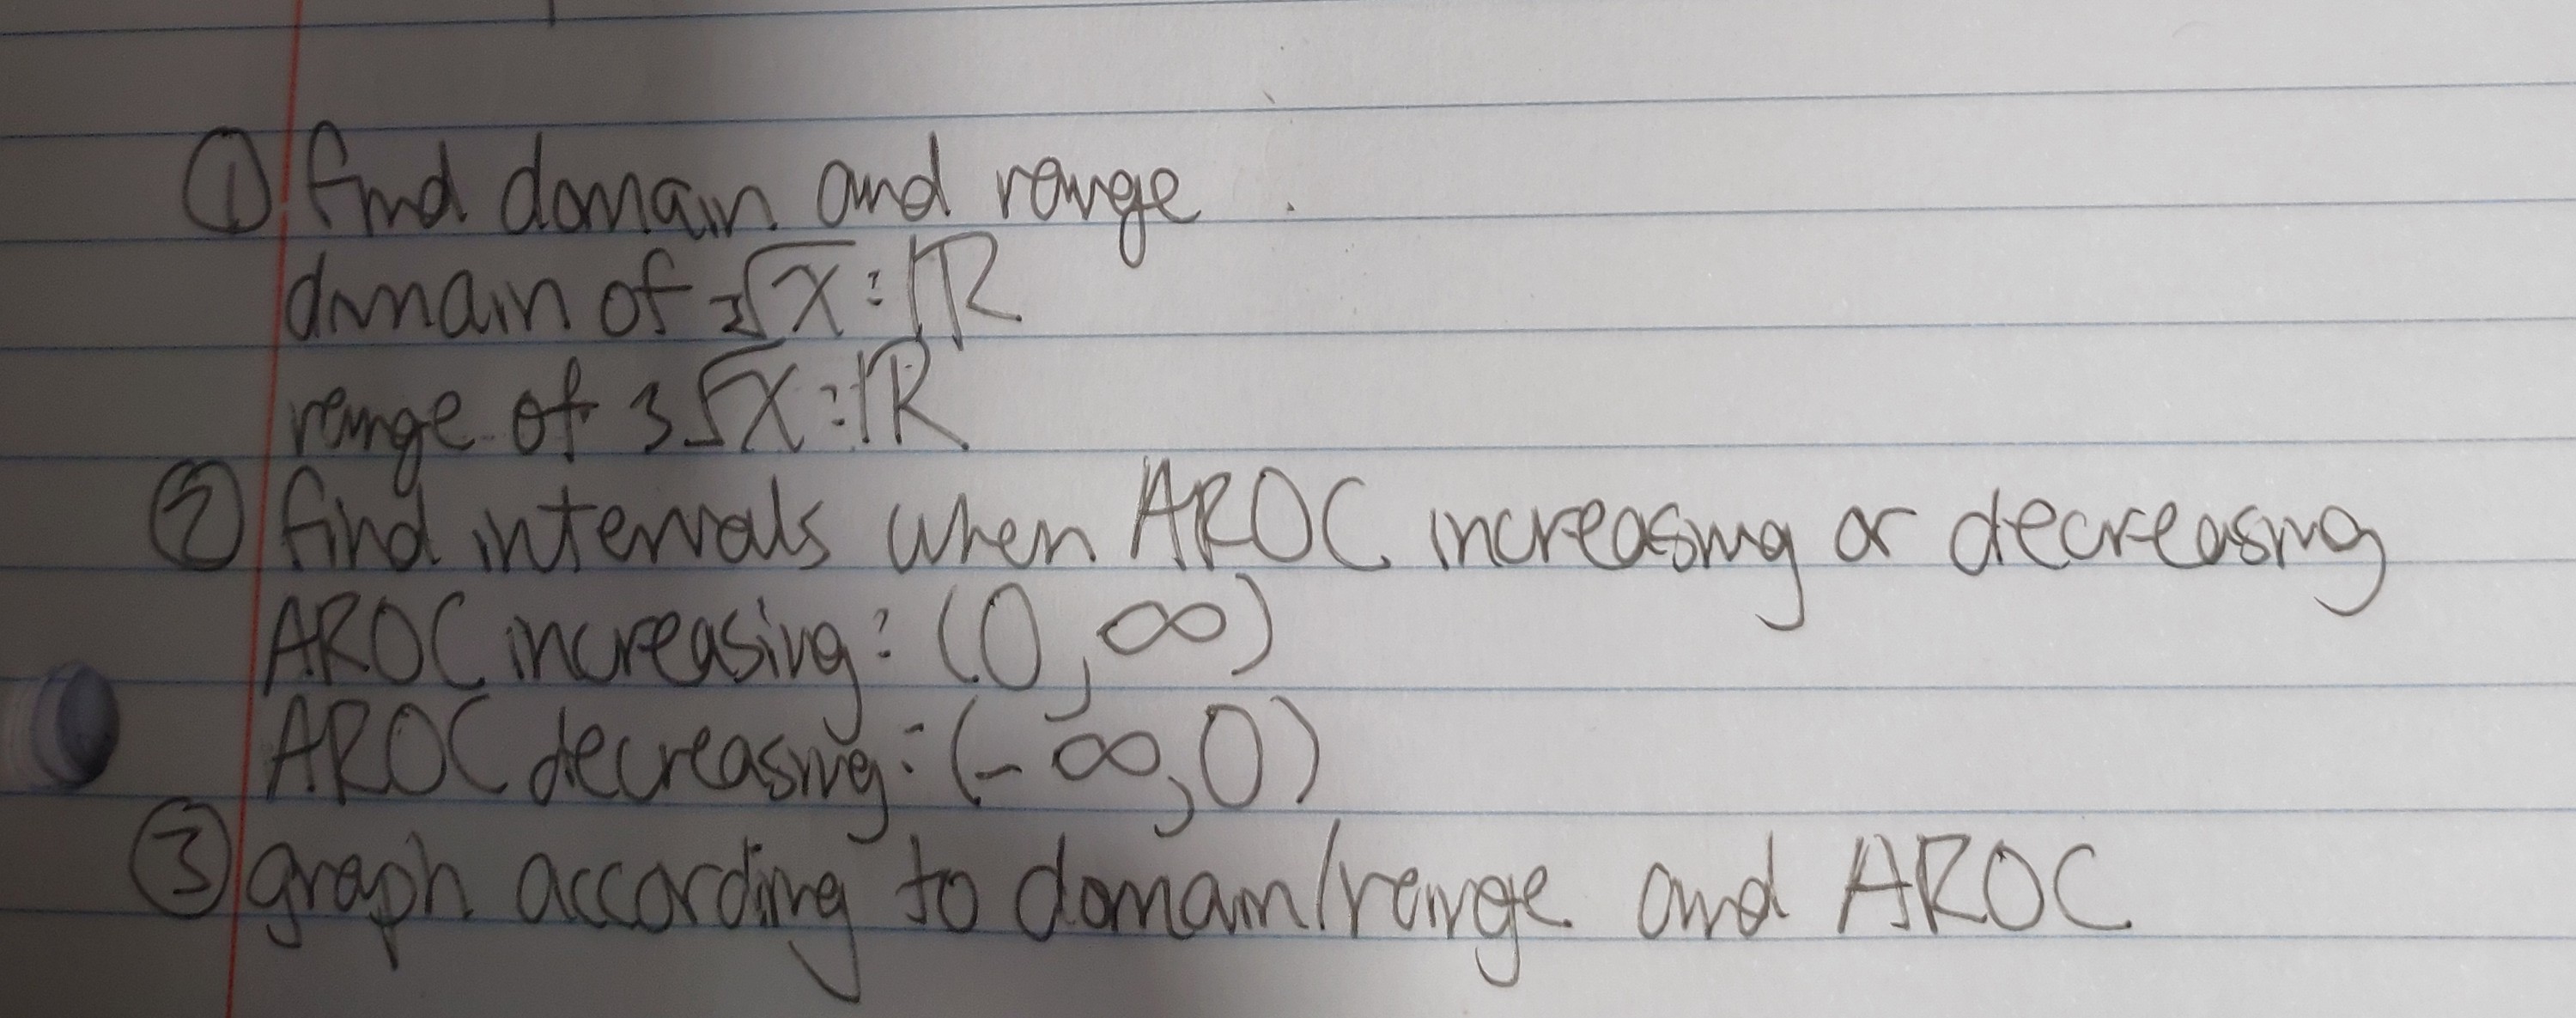 ① find domain and range.
domain of ³√x: ℝ
range of ³√x: ℝ
② find intervals when AROC increasing or decreasing
AROC increasing: (0, ∞)
AROC decreasing: (-∞, 0)
③ graph according to domain/range and AROC